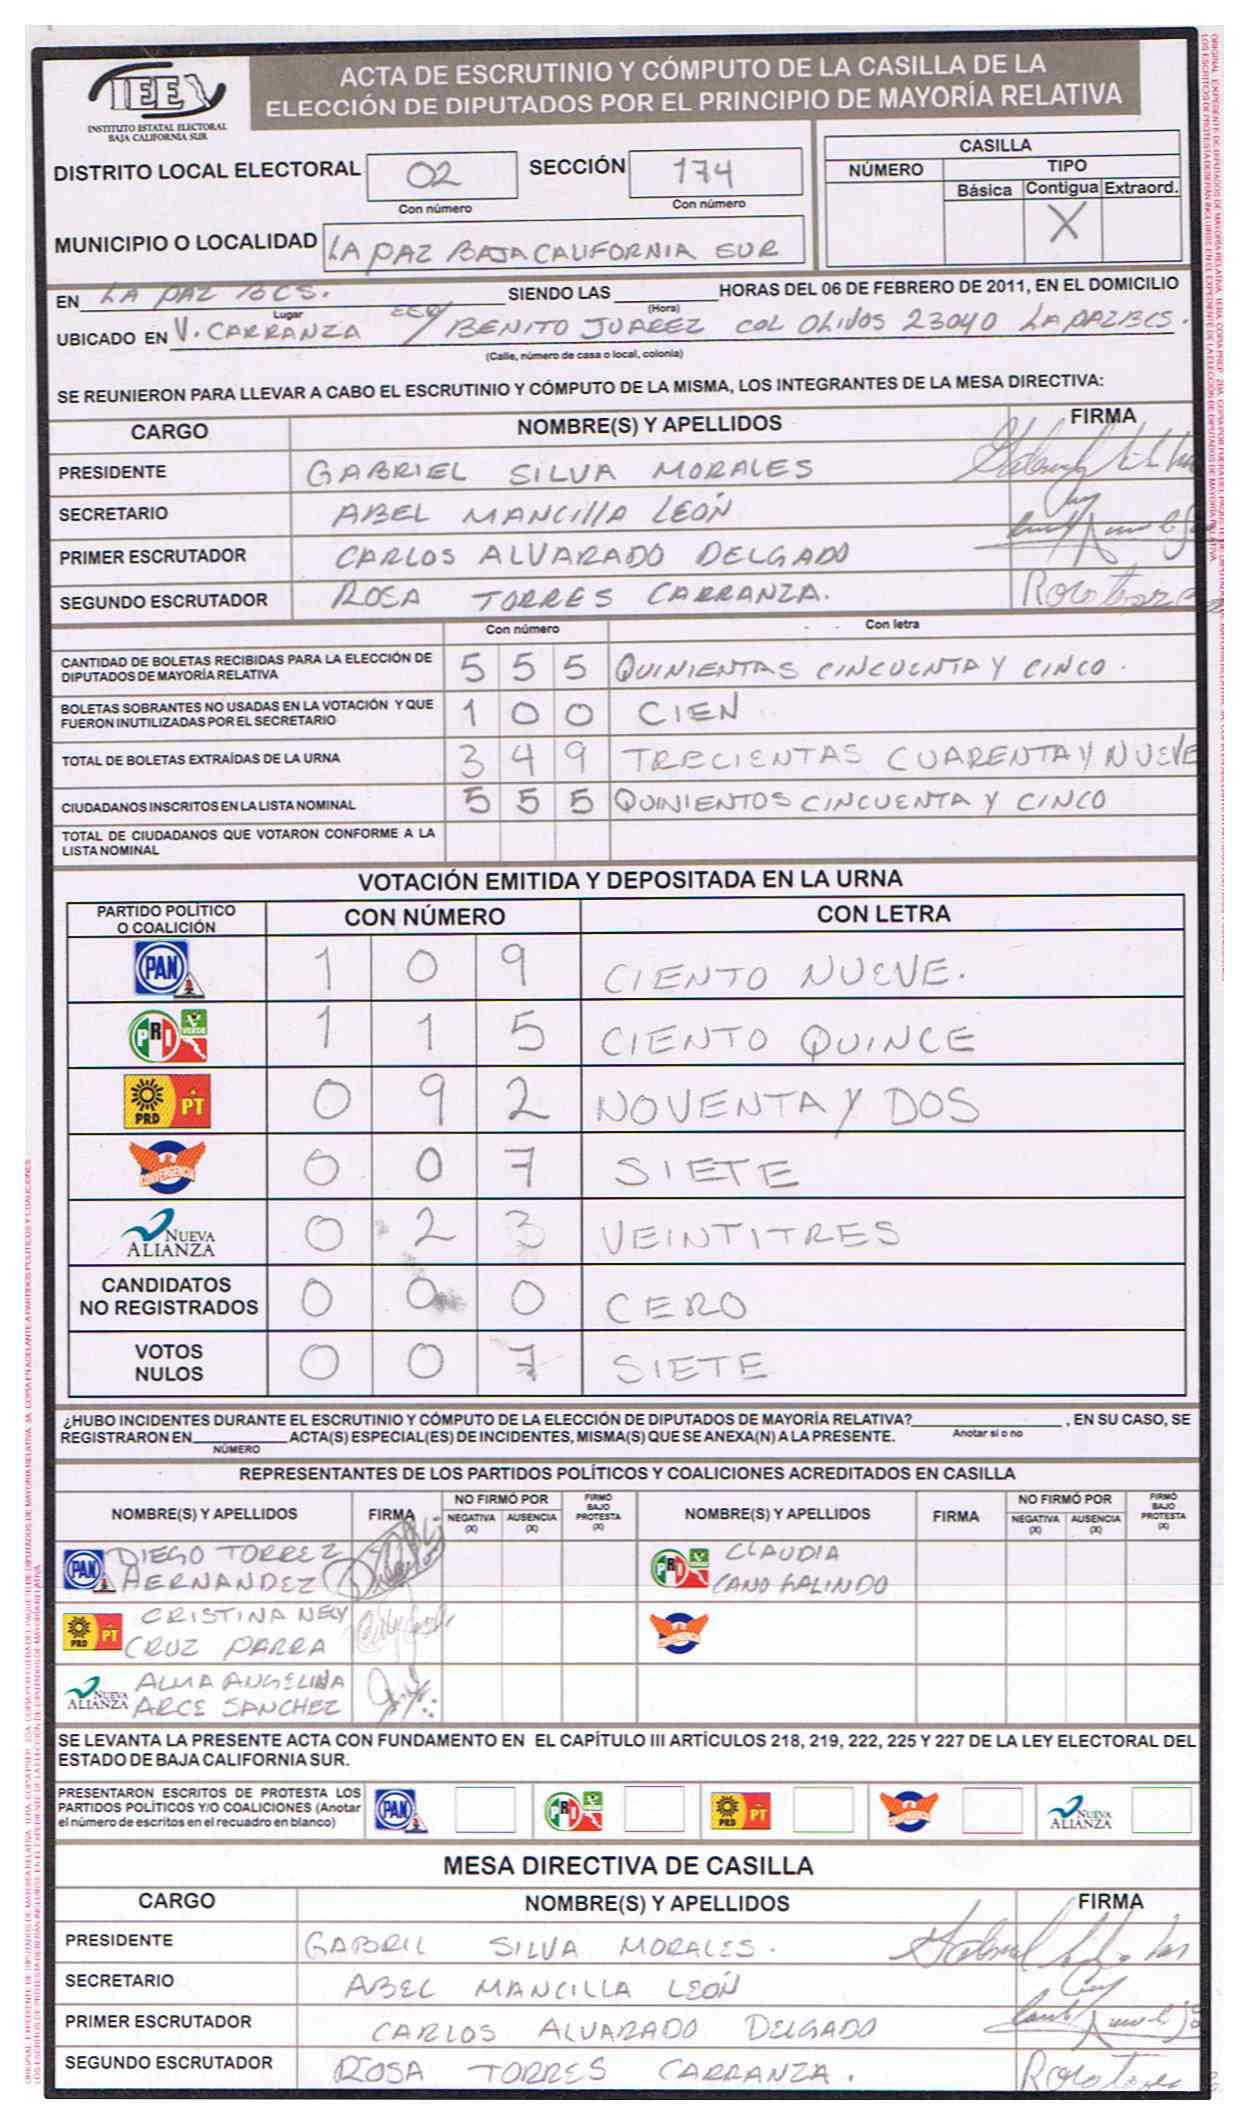 IEE
INSTITUTO ESTATAL ELECTORAL
BAJA CALIFORNIA SUR
ACTA DE ESCRUTINIO Y CÓMPUTO DE LA CASILLA DE LA
ELECCIÓN DE DIPUTADOS POR EL PRINCIPIO DE MAYORÍA RELATIVA
DISTRITO LOCAL ELECTORAL 02 SECCIÓN 174
Con número Con número
CASILLA
NÚMERO TIPO
Básica Contigua Extraord.
X
MUNICIPIO O LOCALIDAD LA PAZ BAJA CALIFORNIA SUR
EN LA PAZ BCS. SIENDO LAS HORAS DEL 06 DE FEBRERO DE 2011, EN EL DOMICILIO
Lugar (Hora)
UBICADO EN V. CARRANZA BENITO JUAREZ COL OLIVOS 23040 LA PAZ BCS.
(Calle, número de casa o local, colonia)
SE REUNIERON PARA LLEVAR A CABO EL ESCRUTINIO Y CÓMPUTO DE LA MISMA, LOS INTEGRANTES DE LA MESA DIRECTIVA:
CARGO NOMBRE(S) Y APELLIDOS FIRMA
PRESIDENTE GABRIEL SILVA MORALES
SECRETARIO ABEL MANCIlla LEÓN
PRIMER ESCRUTADOR CARLOS ALVARADO DELGADO
SEGUNDO ESCRUTADOR ROSA TORRES CARRANZA.
Con número Con letra
CANTIDAD DE BOLETAS RECIBIDAS PARA LA ELECCIÓN DE
DIPUTADOS DE MAYORÍA RELATIVA 5 5 5 QUINIENTAS CINCUENTA Y CINCO.
BOLETAS SOBRANTES NO USADAS EN LA VOTACIÓN Y QUE
FUERON INUTILIZADAS POR EL SECRETARIO 1 0 0 CIEN
TOTAL DE BOLETAS EXTRAÍDAS DE LA URNA 3 4 9 TRECIENTAS CUARENTA Y NUEVE
CIUDADANOS INSCRITOS EN LA LISTA NOMINAL 5 5 5 QUINIENTOS CINCUENTA Y CINCO
TOTAL DE CIUDADANOS QUE VOTARON CONFORME A LA
LISTA NOMINAL
VOTACIÓN EMITIDA Y DEPOSITADA EN LA URNA
PARTIDO POLÍTICO
O COALICIÓN CON NÚMERO CON LETRA
PAN 1 0 9 CIENTO NUEVE.
PRI VERDE 1 1 5 CIENTO QUINCE
PRD PT 0 9 2 NOVENTA Y DOS
CONVERGENCIA 0 0 7 SIETE
NUEVA ALIANZA 0 2 3 VEINTITRES
CANDIDATOS
NO REGISTRADOS 0 0 0 CERO
VOTOS
NULOS 0 0 7 SIETE
¿HUBO INCIDENTES DURANTE EL ESCRUTINIO Y CÓMPUTO DE LA ELECCIÓN DE DIPUTADOS DE MAYORÍA RELATIVA? , EN SU CASO, SE
Anotar si o no
REGISTRARON EN ACTA(S) ESPECIAL(ES) DE INCIDENTES, MISMA(S) QUE SE ANEXA(N) A LA PRESENTE.
NÚMERO
REPRESENTANTES DE LOS PARTIDOS POLÍTICOS Y COALICIONES ACREDITADOS EN CASILLA
NOMBRE(S) Y APELLIDOS FIRMA NO FIRMÓ POR NEGATIVA (X) AUSENCIA (X) FIRMÓ BAJO PROTESTA (X) NOMBRE(S) Y APELLIDOS FIRMA NO FIRMÓ POR NEGATIVA (X) AUSENCIA (X) FIRMÓ BAJO PROTESTA (X)
PAN DIEGO TORREZ HERNANDEZ PRI VERDE CLAUDIA CANO GALINDO
PRD PT CRISTINA NELY CRUZ PARRA CONVERGENCIA
NUEVA ALIANZA ALMA ANGELINA ARCE SANCHEZ
SE LEVANTA LA PRESENTE ACTA CON FUNDAMENTO EN EL CAPÍTULO III ARTÍCULOS 218, 219, 222, 225 Y 227 DE LA LEY ELECTORAL DEL
ESTADO DE BAJA CALIFORNIA SUR.
PRESENTARON ESCRITOS DE PROTESTA LOS
PARTIDOS POLÍTICOS Y/O COALICIONES (Anotar
el número de escritos en el recuadro en blanco)
PAN PRI VERDE PRD PT CONVERGENCIA NUEVA ALIANZA
MESA DIRECTIVA DE CASILLA
CARGO NOMBRE(S) Y APELLIDOS FIRMA
PRESIDENTE GABRIL SILVA MORALES.
SECRETARIO ABEL MANCILLA LEÓN
PRIMER ESCRUTADOR CARLOS ALVARADO DELGADO
SEGUNDO ESCRUTADOR ROSA TORRES CARRANZA.